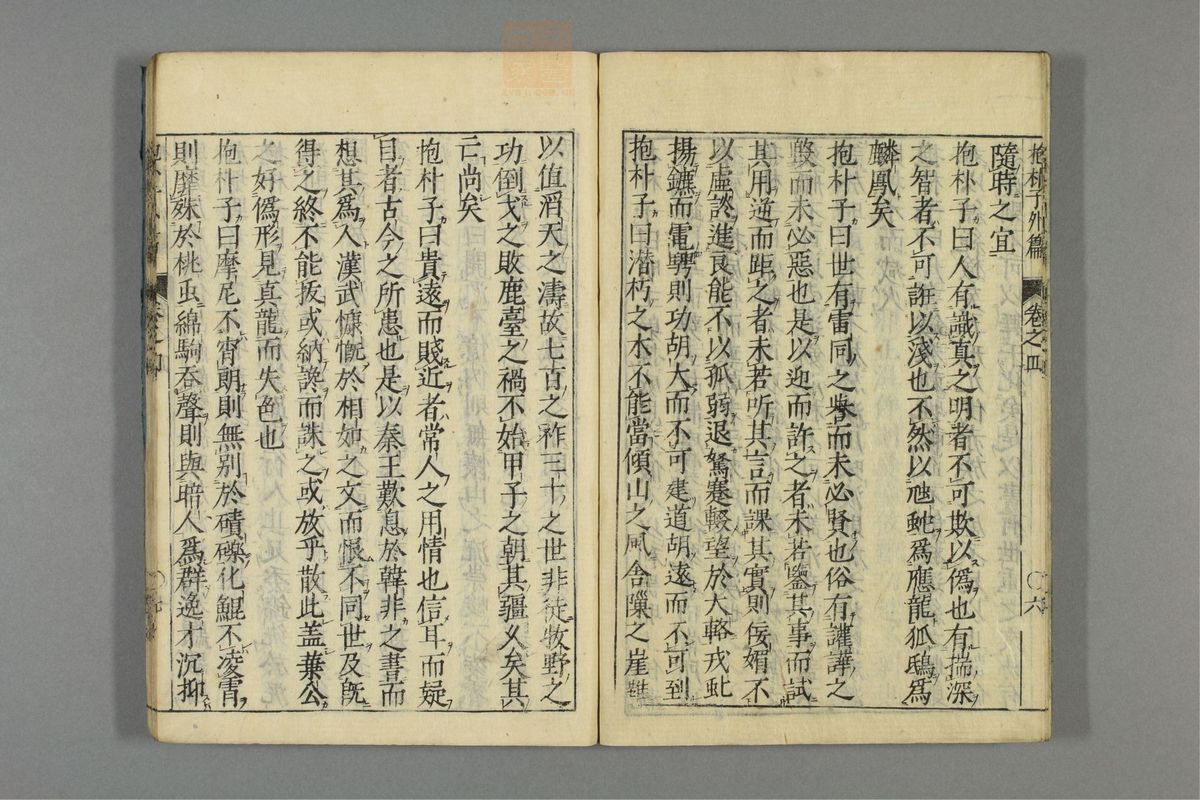 抱朴子外篇　卷之四　〇六
隨時之宜
抱朴子曰人有識真之明者不可欺以僞也有揣深
之智者不可誑以淺也不然以虺虵爲應龍狐鴟爲
麟鳳矣
抱朴子曰世有雷同之譽而未必賢也俗有讙譁之
毀而未必惡也是以迎而許之者未若鑒其事而試
其用逆而距之者未若听其言而課其實則佞媚不
以虛談進良能不以孤弱退駑蹇輟望於大輅戎虬
揚鑣而電騁則功胡大而不可建道胡遠而不可到
抱朴子曰潜朽之木不能當傾山之風含隟之崖難
以值滔天之濤故七百之祚三十之世非徒牧野之
功倒戈之敗鹿臺之禍不始甲子之朝其彊乆矣其
亡尚矣
抱朴子曰貴遠而賤近者常人之用情也信耳而疑
目者古今之所患也是以秦王歎息於韓非之書而
想其爲人漢武慷慨於相如之文而恨不同世及旣
得之終不能拔或納讒而誅之或放乎散此盖葉公
之好僞形見真龍而失色也
抱朴子曰摩尼不宵朗則無別於磧礫化鯤不凌霄
則靡殊於桃虫綿駒吞聲則與暗人爲群逸才沉抑
〇七